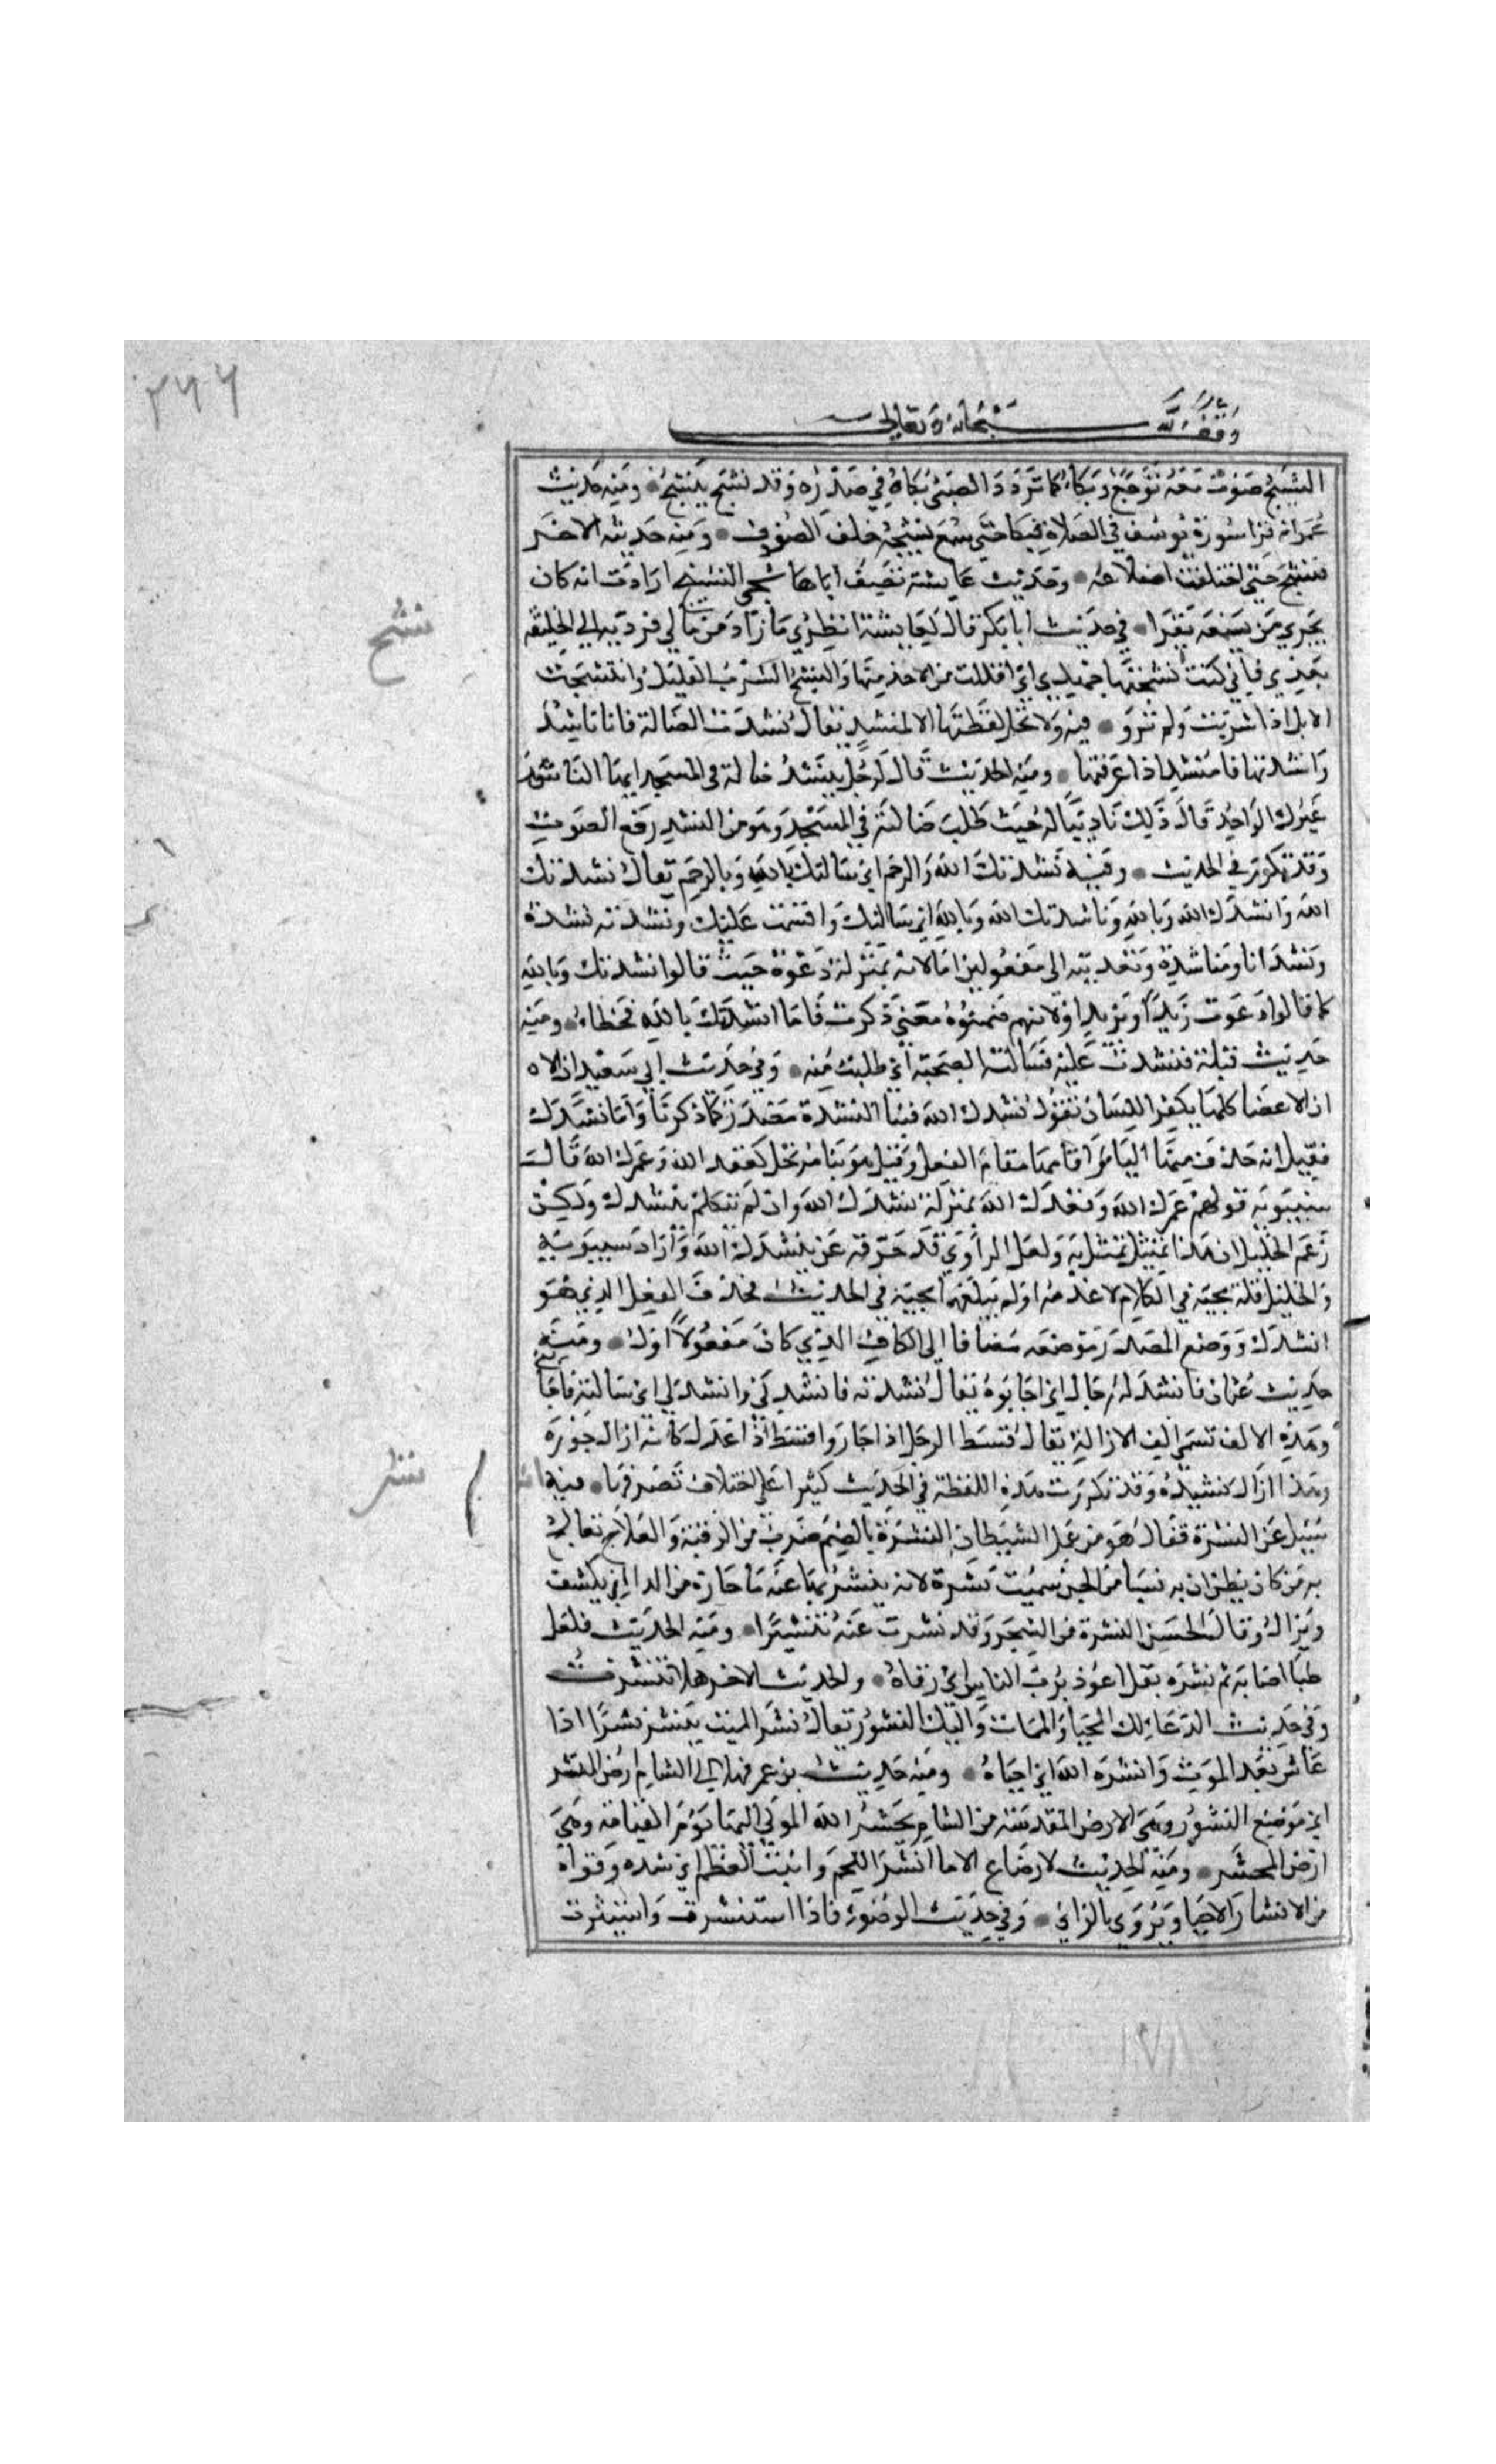 ٢٦٦
وقف لله سبحانه وتعالى
النشيج صوت معه توجع وبكاء كما تردد الصبى بكاه في صدره وقد نشج ينشج ومنه حديث
عمر انه قرا سورة يوسف في الصلاة فبكا حتى سمع نشيجه خلف الصفوف ومنه حديثه الاخر
فنشج حتى اختلفت اضلاعه وحديث عايشة تصيف اباها شجى النشيج ارادت انه كان
يجزي من يسمعه يقرا في حديث ابا بكر قال لعايشة انظري ما زاد من مالي فرديه الى الخليفة
بعدي فاني كنت نشحتها جهدي اى اقللت من الاخذ منها والنشح الشرب القليل وانتشحت
الابل اذا شربت ولم ترو فيه ولا تحل لقطتها الا لمنشد يقال نشدت الضالة فانا ناشد
وانشدتها فا منشد اذا عرفتها ومنه الحديث قال لرجل ينشد ضالة في المسجد ايها الناشد
غيرك الواجد قال ذلك تاديبا له حيث طلب ضالته في المسجد وهو من النشيد رفع الصوت
وقد تكرر في الحديث وفيه نشدتك الله والرحم اى سالتك بالله وبالرحم يقال نشدتك
الله وانشدك الله وبالله وناشدتك الله وبالله اى سالتك واقسمت عليك ونشدته نشدة
ونشدانا ومناشدة وتعديته الى مفعولين اما لانه بمنزلة دعوة حيث قالوا نشدتك وبالله
كما قالوا دعوت زيدا وبزيد او لانهم ضمنوه معنى ذكرت فاما انشدتك بالله فخطا ومنه
حديث قيلة فنشدت عليه فسالته الصحبة اى طلبت منه وفي حديث ابي سعيد ان الا
ان الاعضا كلها يكفر اللسان تقول نشدك الله فينا النشدة مصدر كما ذكرنا واما نشدك
فقيل انه حذف منها اليا من اقامها مقام الفعل وقيل هو بنا مرتجل كقعدك الله وعمرك الله قال
سيبويه قولهم عمرك الله وقعدك الله بمنزلة نشدك الله وان لم يتكلم بنشدك ولكن
زعم الخليل ان هذا تمثيل تمثل به ولعل الراوي قد حرفه عن ينشدك الله واراد سيبويه
والخليل قلة مجيه في الكلام لا عدمه او لم يبلغهما مجيه في الحديث فحذف الفعل الذي هو
انشدك ووضع المصدر موضعه مضافا الى الكاف الذي كان مفعولا اول ومنه
حديث عثمان فانشد له رجال اى اجابوه يقال نشدته فانشدني وانشد لي اى سالته فاجا
وهذه الالف تسمى الف الازالة يقال قسط الرجل اذا جار واقسط اذا عدل كانه ازال جوره
وهذا ازال نشيده وقد تكررت هذه اللفظة في الحديث كثيرا على اختلاف تصرفها فيه
سيل عن النشرة فقال هو من عمل الشيطان النشرة بالضم ضرب من الرقية والعلاج يعالج
به من كان يظن ان به مسا من الجن سميت نشرة لانه ينشر بها عنه ما خارة من الدا اى يكشف
ويزال وقال الحسن النشرة من السحر وقد نشرت عنه تنشيرا ومنه الحديث فلعل
طبا اصابه ثم نشره بقل اعوذ برب الناس اى رقاه والحديث الاخر هلا تنشرت
وفي حديث الدعا لك المحيا والممات واليك النشور يقال نشر الميت ينشر نشرا اذا
عاش بعد الموت وانشره الله اى احياه ومنه حديث بن عمر فهلا الى الشام ارض المنشر
اى موضع النشور وهى الارض المقدسة من الشام يحشر الله الموتى اليها يوم القيامة وهى
ارض المحشر ومنه الحديث لا رضاع الا ما انشر اللحم وانبت العظم اى شده وقواه
من الانشار الاحيا ويروى بالزاي وفي حديث الوضوء فاذا استنشرت واستنثرت
نشح
نشر